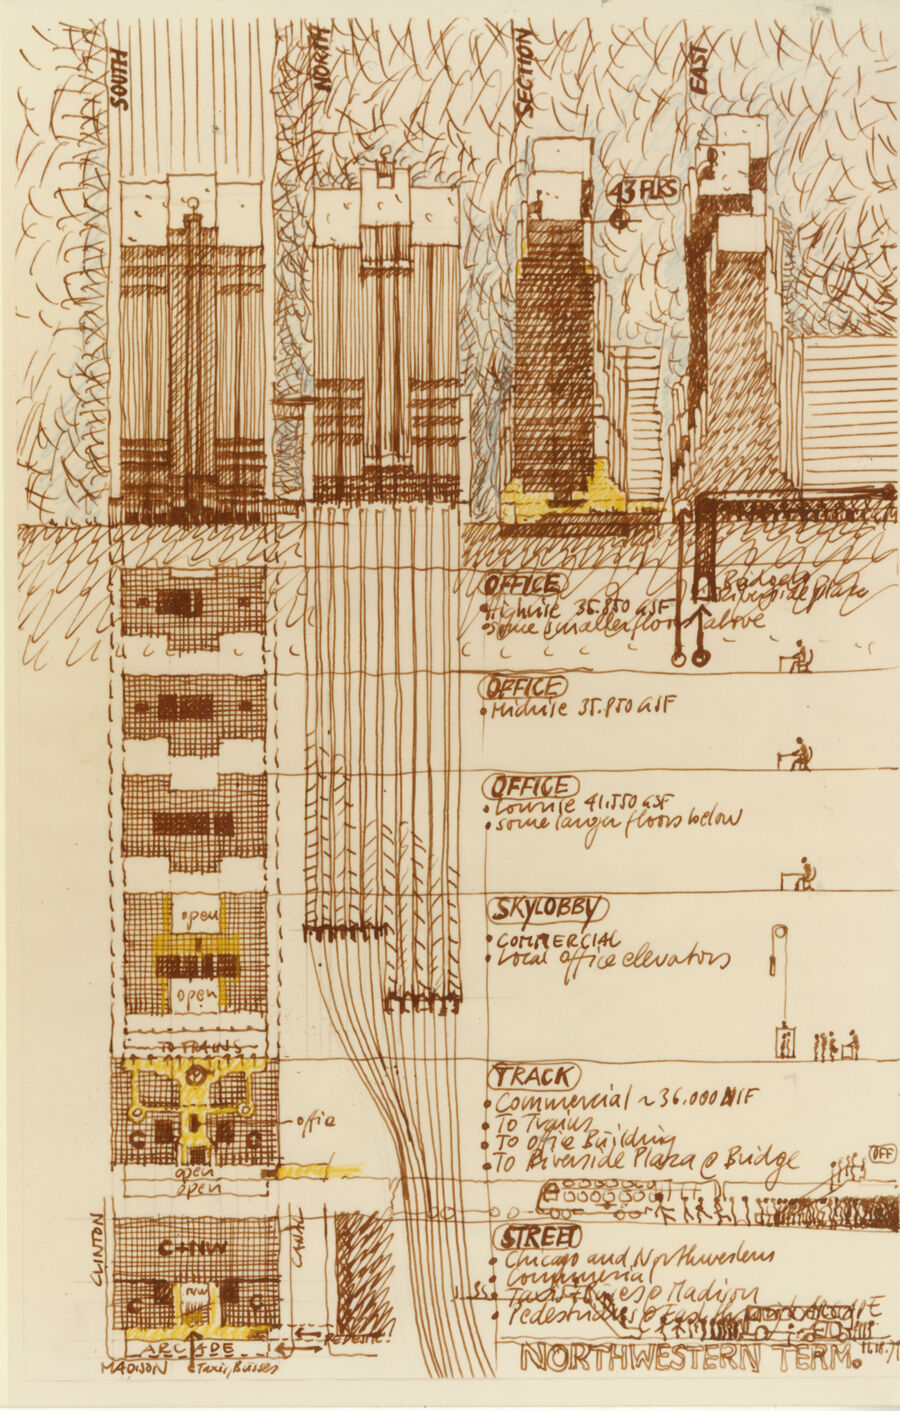 SOUTH
NORTH
SECTION
EAST
43 FLRS
OFFICE
• Highrise 35.850 GSF
some smaller floors above
Riverside Plaza
OFFICE
• Midrise 35.850 GSF
OFFICE
• Lowrise 41.550 GSF
• some larger floors below
open
open
SKYLOBBY
• COMMERCIAL
• Local office elevators
TO TRAINS
C
C
office
open
open
TRACK
• Commercial ~36.000
• To Trains
• To office Building
• To Riverside Plaza @ Bridge
OFF
CLINTON
CANAL
C+NW
C
C
ARCADE
MADISON
Taxis, Busses
STREET
• Chicago and Northwestern
• Commercial
• Taxis + Busses @ Madison
• Pedestrians @ East
NORTHWESTERN TERM.